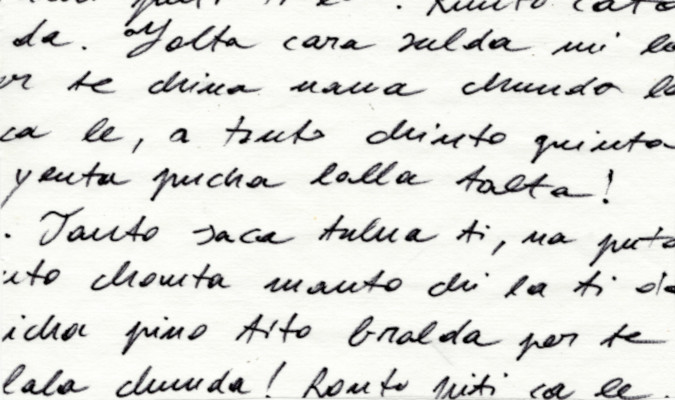 da. Yolta cara sulda mi la
or te china nana chundo le
ca le, a tonto chinto quinta
yenta pucha lalla talta!
. Tanto saca tulna ti, na puta
nto chonta manto chi la ti da
icha pino tito bralda por te
lala chunda! Ronto piti ca le.